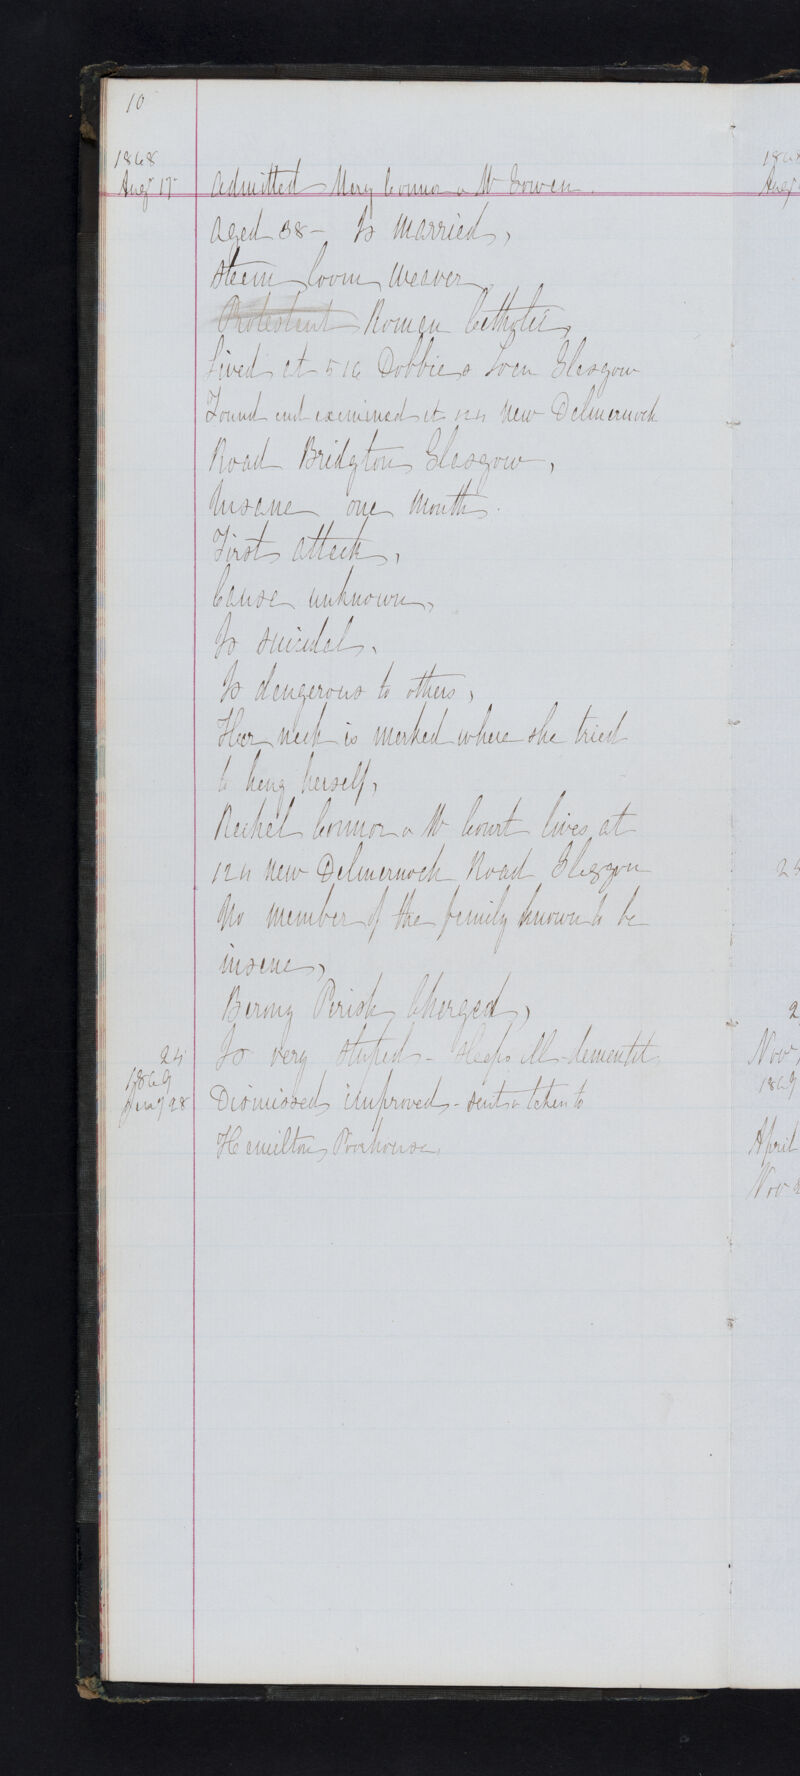 10
1868
Augt 17 Admitted Mary Connor or McGowan.
Aged 38 - Is married,
Steam loom weaver
Protestant Roman Catholic,
Lived at 516 Dobbies Loan Glasgow
Found and examined at 124 New Dalmarnock
Road Bridgton Glasgow,
Insane one month.
First attack,
Cause unknown,
Is suicidal,
Is dangerous to others,
Her neck is marked where she tried
to hang herself,
Rachel Connor or McCourt lives at
124 New Dalmarnock Road Glasgow
No member of the family known to be
insane,
Barony Parish Charged,
24 Is very stupid - sleeps ill - demented
1869
Jany 28 Dismissed improved - sent or taken to
Hamilton Poorhouse,
1868
Augt
Nov
1869
April
Nov